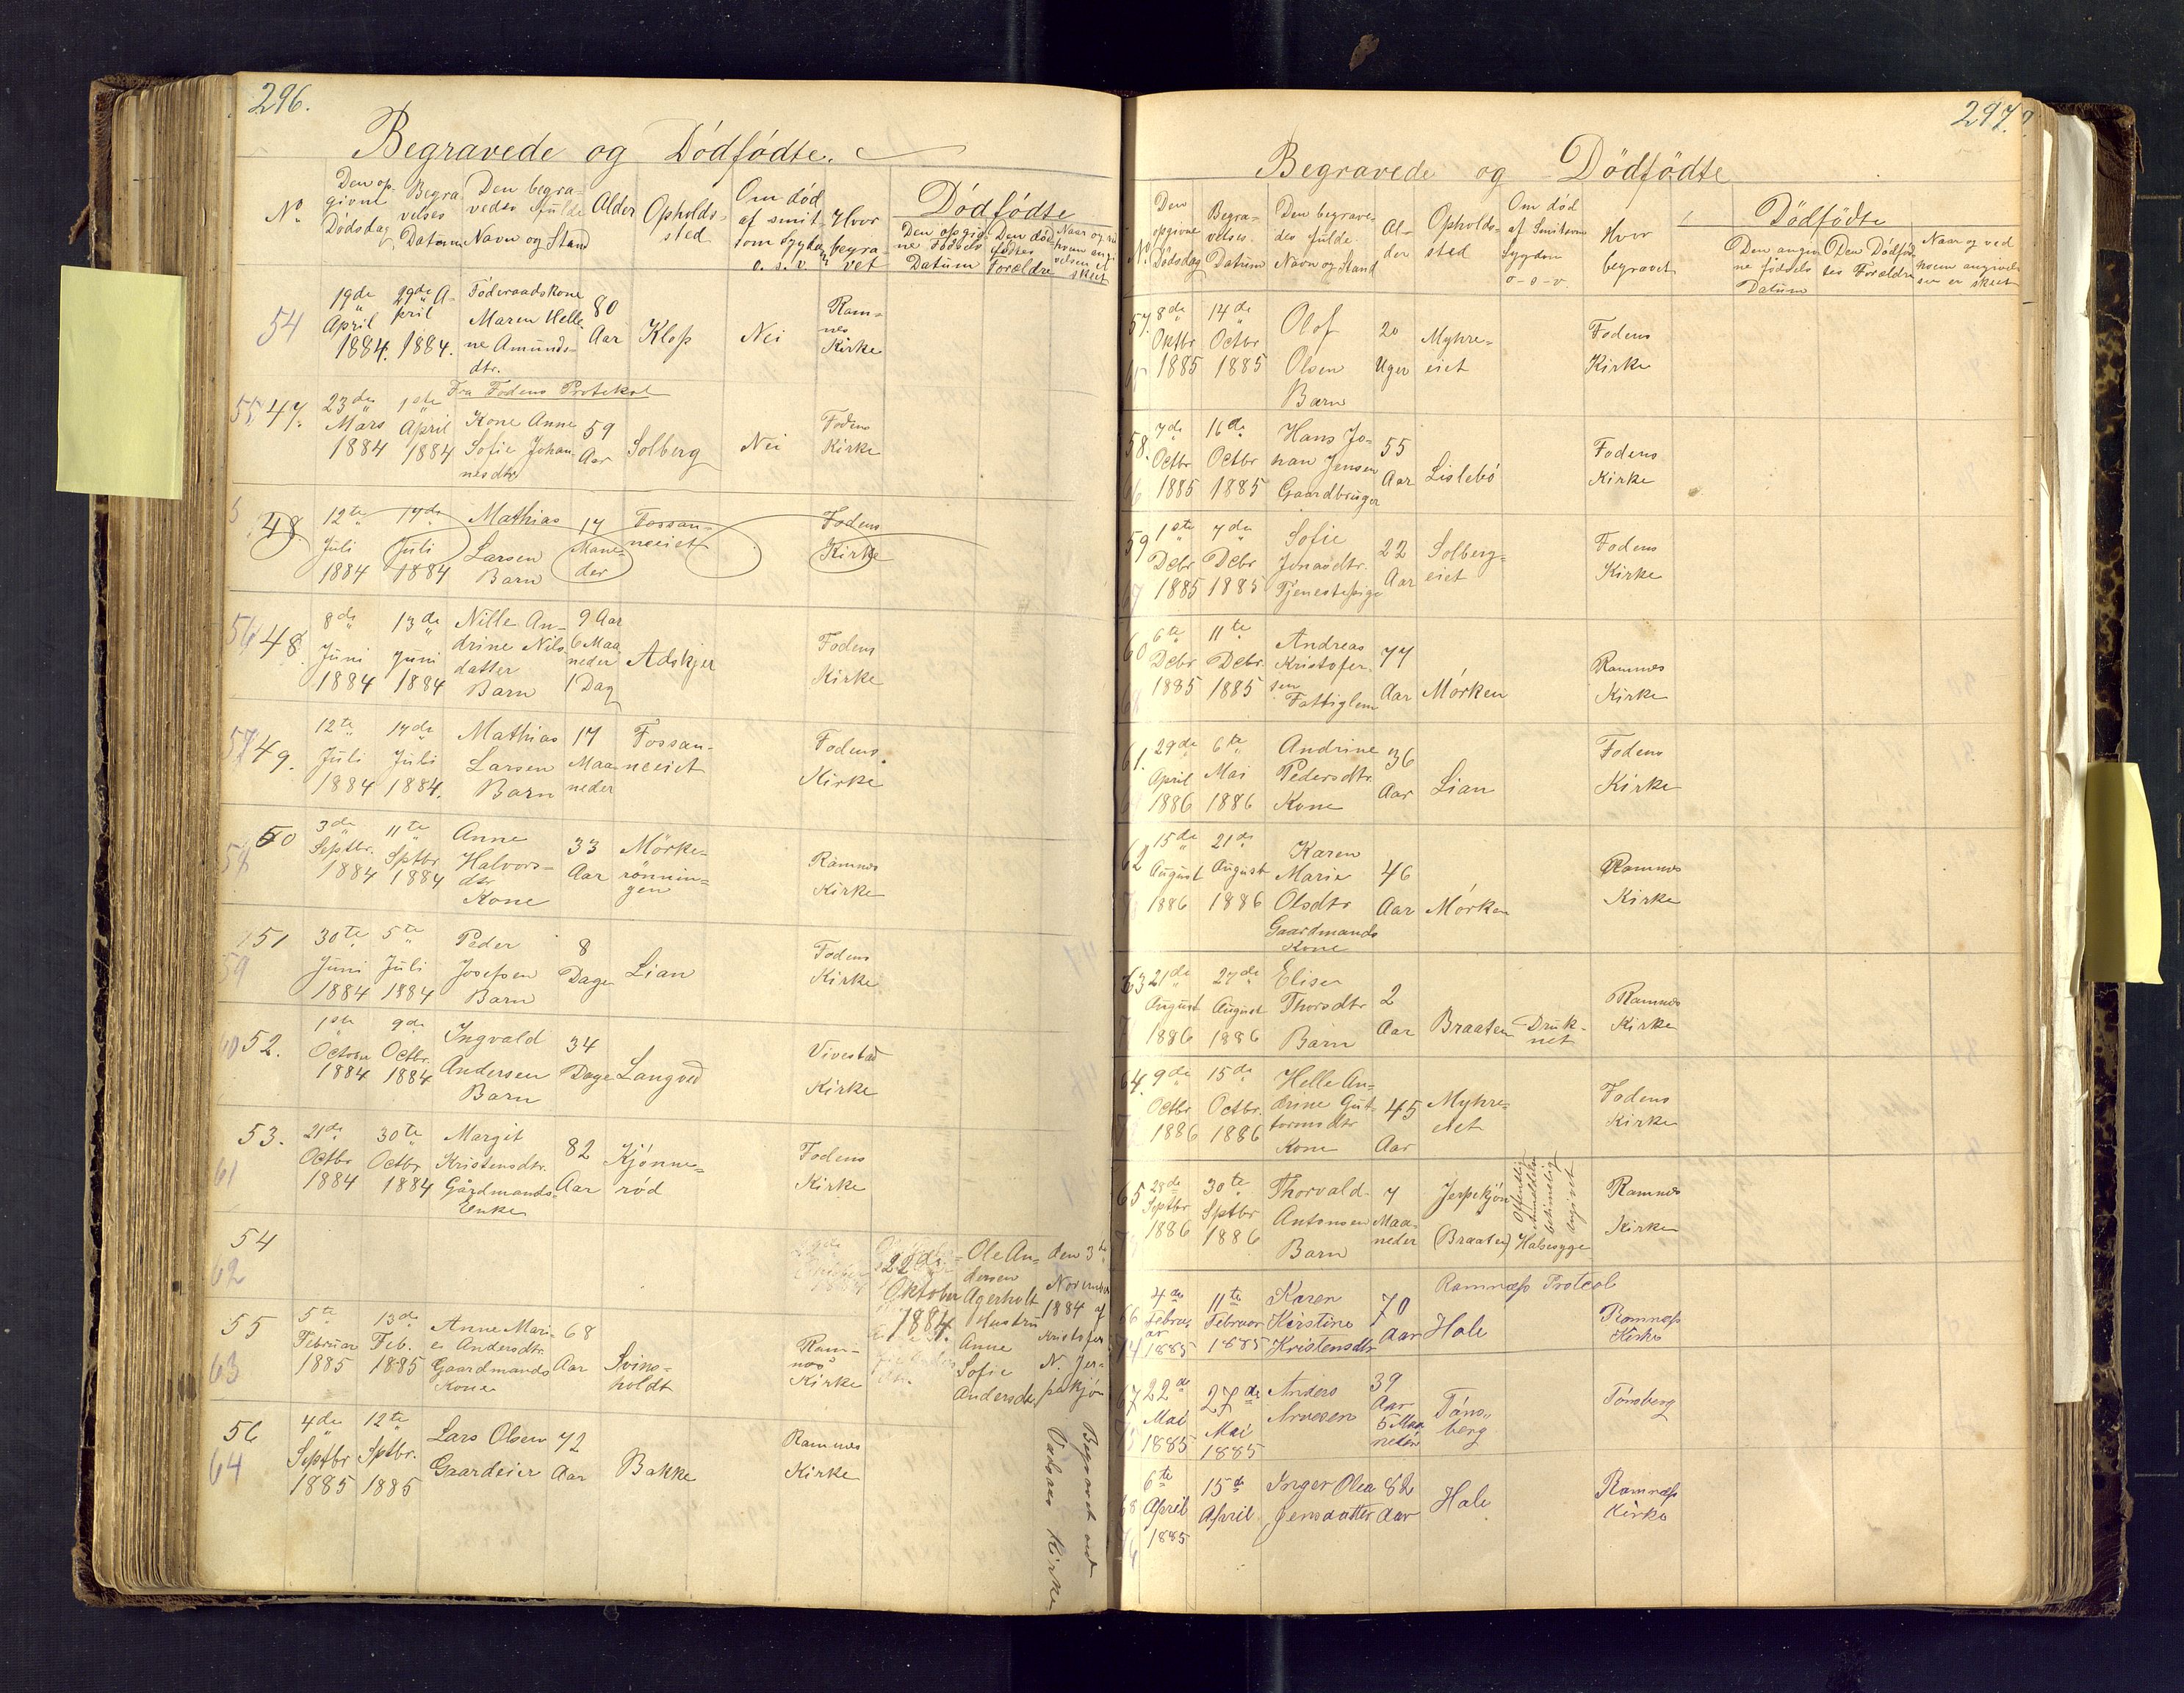 296.
Begravede og Dödfödte.
No
Den op-
givne
Dödsdag
Begra-
velses
Datum
Den begra-
vedes fulde
Navn og Stand
Alder
Opholds-
sted
Om död
af smit-
som Sygdom
o. s. v
Hvor
begra-
vet
Dödfödte
Den opgiv-
ne Födsels
Datum
Den död-
födtes
Forældre
54
19de
April
1884.
29de A-
pril
1884.
Föderaadskone
Maren Helle-
ne Amunds-
dtr.
80
Aar
Klop
Nei
Ram-
nes
Kirke
Fra Fodens Protokol
55
47.
23de
Mars
1884
1ste
April
1884
Kone Anne
Sofie Johan-
nesdtr
59
Aar
Solberg
Nei
Fodens
Kirke
48
12te
Juli
1884
17de
Juli
1884
Mathias
Larsen
Barn
17
Maane-
der
Fossan-
neeiet
Fodens
Kirke
56
48.
8de
Juni
1884
13de
Juni
1884
Nille An-
drine Nils-
datter
Barn
9 Aar
6 Maa-
neder
1 Dag
Adskjer
Fodens
Kirke
57
49.
12te
Juli
1884
17de
Juli
1884.
Mathias
Larsen
Barn
17
Maa-
neder
Fossan-
neeiet
Fodens
Kirke
58
50
3de
Septbr.
1884
11te
Sptbr
1884
Anne
Halvors-
dtr
Kone
33
Aar
Mörke-
rönnin-
gen
Ramnes
Kirke
59
51
30te
Juni
1884
5te
Juli
1884
Peder
Josefsen
Barn
8
Dage
Lian
Fodens
Kirke
60
52.
1ste
October
1884
9de
Octbr.
1884
Ingvald
Andersen
Barn
34
Dage
Langved
Vivestad
Kirke
61
53.
21de
Octbr
1884
30te
Octbr
1884
Margit
Kristensdtr.
Gårdmands
Enke
82
Aar
Kjönne-
röd
Fodens
Kirke
54
62
22de
Oktober
1884.
Ole An-
dersen
Agerholt
Hustru
Anne
Sofie
Andersdtr
den 3te
November
1884 af
Kristofer
N. Jer-
pekjön
55
63
5te
Februar
1885
13de
Feb.
1885
Anne Mari-
e Andersdtr.
Gaardmands
Kone
68
Aar
Svins-
holdt
Ram-
nes
Kirke
56
64
4de
Septbr
1885
12te
Sptbr.
1885
Lars Olsen
Gaardeier
72
Aar
Bakke
Ramnes
Kirke
Begravet ved
Kirke
297.
Begravede og Dödfödte
No
Den
opgivne
Dödsdag
Begra-
velses.
Datum
Den begrave-
des fulde
Navn og Stand
Al-
der
Opholds-
sted
Om död
af Smitsom
Sygdom
o-s-v.
Hvor
begravet
Dödfödte
Den angiv-
ne Födsels
Datum
Den Dödföd-
tes Forældre
Naar og ved
hvem angivel-
sen er skeet
57.
8de
Oktbr
1885
14de
Octbr
1885
Olof
Olsen
Barn
20
Uger
Myhre-
eiet
Fodens
Kirke
58.
7de
Octbr
1885
16de
Octbr
1885
Hans Jo-
han Jensen
Gaardbruger
55
Aar
Lislebö
Fodens
Kirke
59
1ste
Debr
1885
7de
Debr
1885
Sofie
Jonasdtr.
Tjenestepige
22
Aar
Solberg-
eiet
Fodens
Kirke
60
6te
Debr
1885
11te
Debr.
1885
Andreas
Kristofer-
sen
Fattiglem
77
Aar
Mörken
Ramnes
Kirke
61.
29de
April
1886
6te
Mai
1886
Andrine
Pedersdtr.
Kone
36
Aar
Lian
Fodens
Kirke
62
15de
August
1886
21de
August
1886
Karen
Marie
Olsdtr
Gaardmands
Kone
46
Aar
Mörken
Ramnes
Kirke
63
21de
August
1886
27de
August
1886
Elise
Thorsdtr
Barn
2
Aar
Braaten
Druk-
net
Ramnes
Kirke
64.
9de
Octbr
1886
15de
Octbr.
1886
Helle An-
drine Gut-
tormsdtr
Kone
45
Aar
Myhre-
eiet
Fodens
Kirke
65
28de
Septbr
1886
30te
Sptbr
1886
Thorvald
Antonsen
Barn
7
Maa-
neder
Jerpekjön
(Braaten)
Halssyge
Ramnes
Kirke
Ramnæs Protcol
66
4de
Februar
1885
11te
Februar
1885
Karen
Kirstine
Kristensdtr
70
Aar
Hale
Ramnæs
Kirke
67
22de
Mai
1885
27de
Mai
1885
Anders
Arvesen
39
Aar
5 Maa
neder
Töns-
berg
Tönsberg
68
6te
April
1885
15de
April
Inger Olea
Jensdatter
82
Aar
Hale
Ramnæs
Kirke